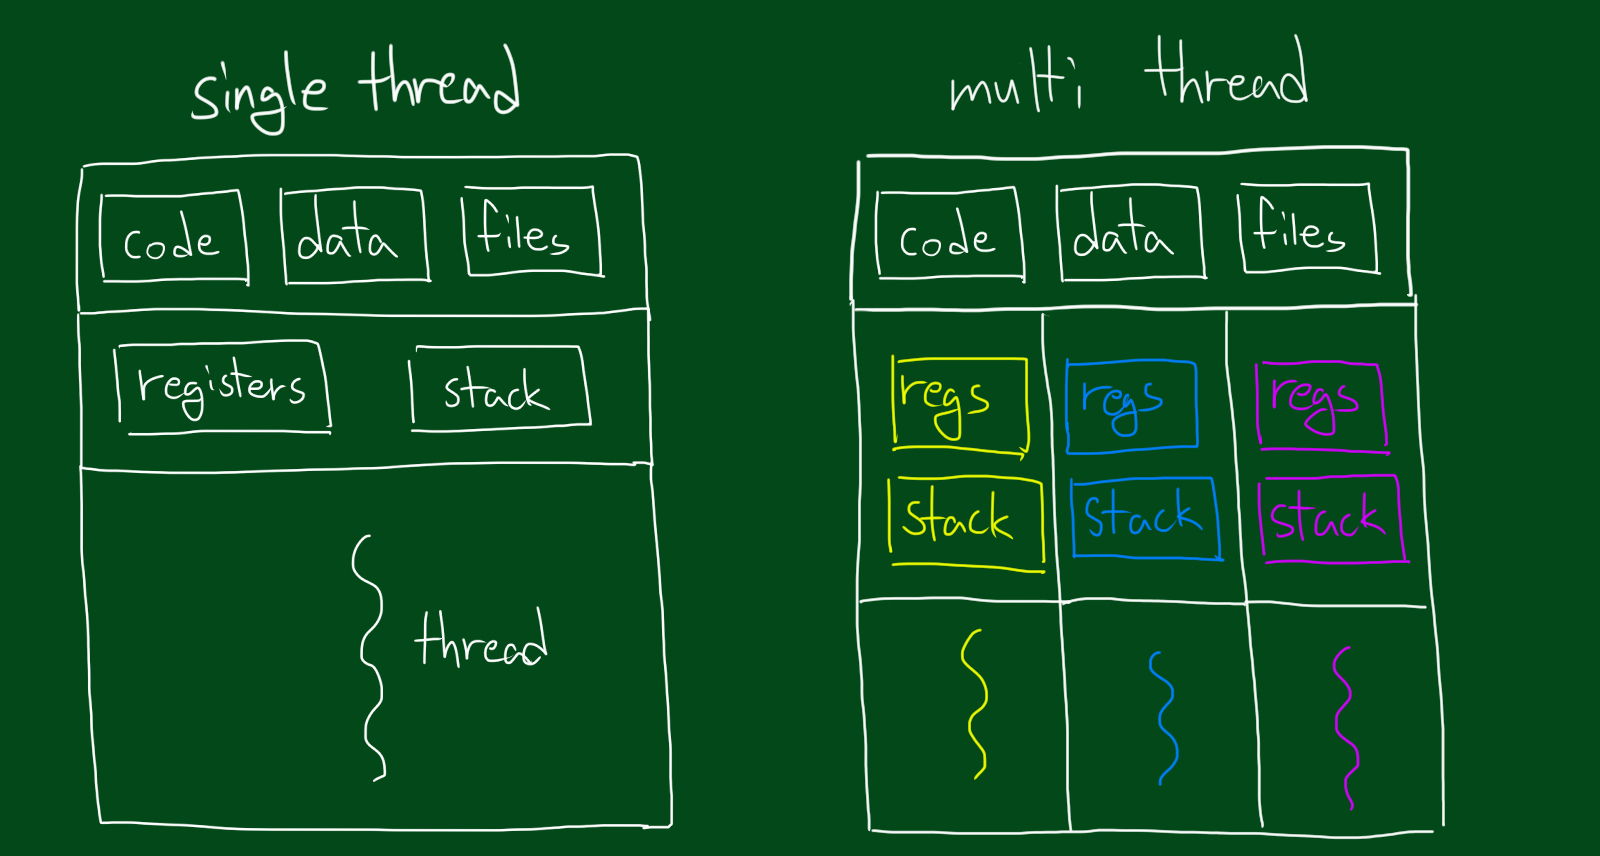 single thread
code data files
registers stack
thread
multi thread
code data files
regs regs regs
stack stack stack